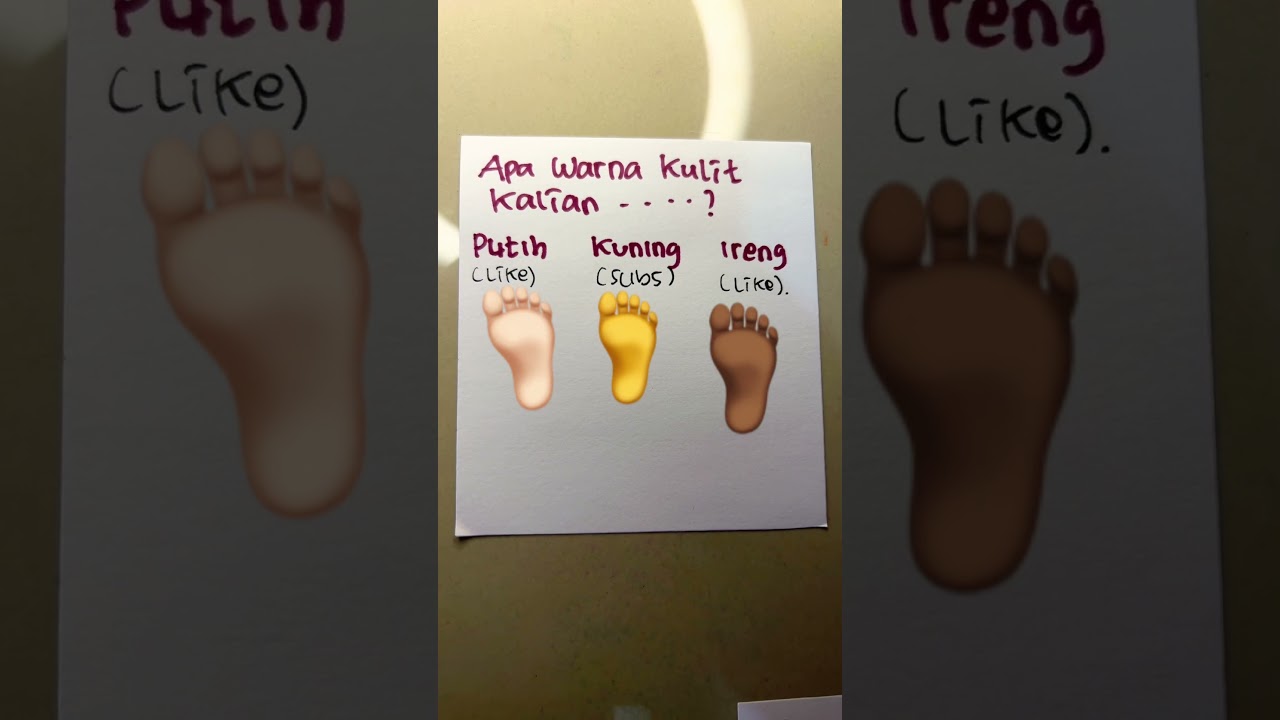 Apa warna kulit
kalian ....?
Putih Kuning Ireng
(Like) (subs) (Like).
Putih
(Like)
Ireng
(Like).